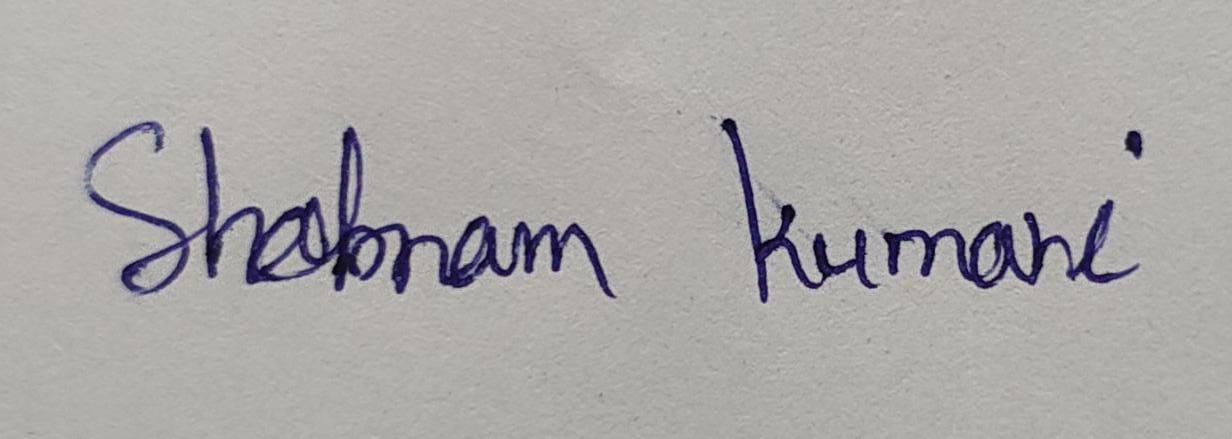 Shabnam kumari